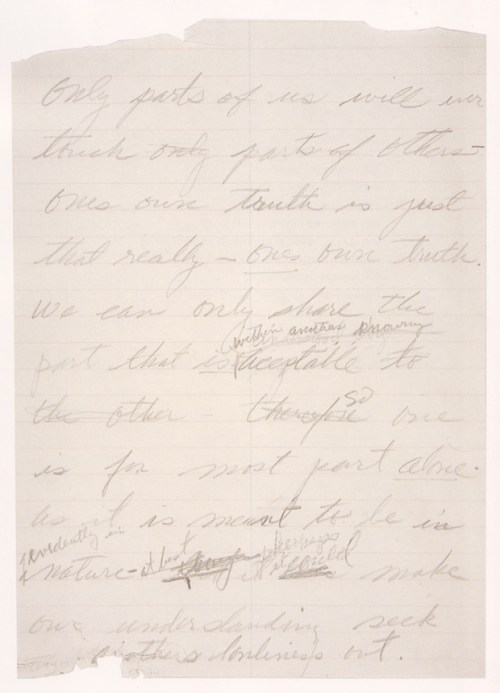 Only parts of us will ever
touch only parts of others—
ones own truth is just
that really — ones own truth.
We can only share the
within anothers knowing
part that is acceptable to
so
the other — therefore one
is for most part alone.
As it is meant to be in
evidently in
nature — at best perhaps
it could make
our understanding seek
anothers lonliness out.